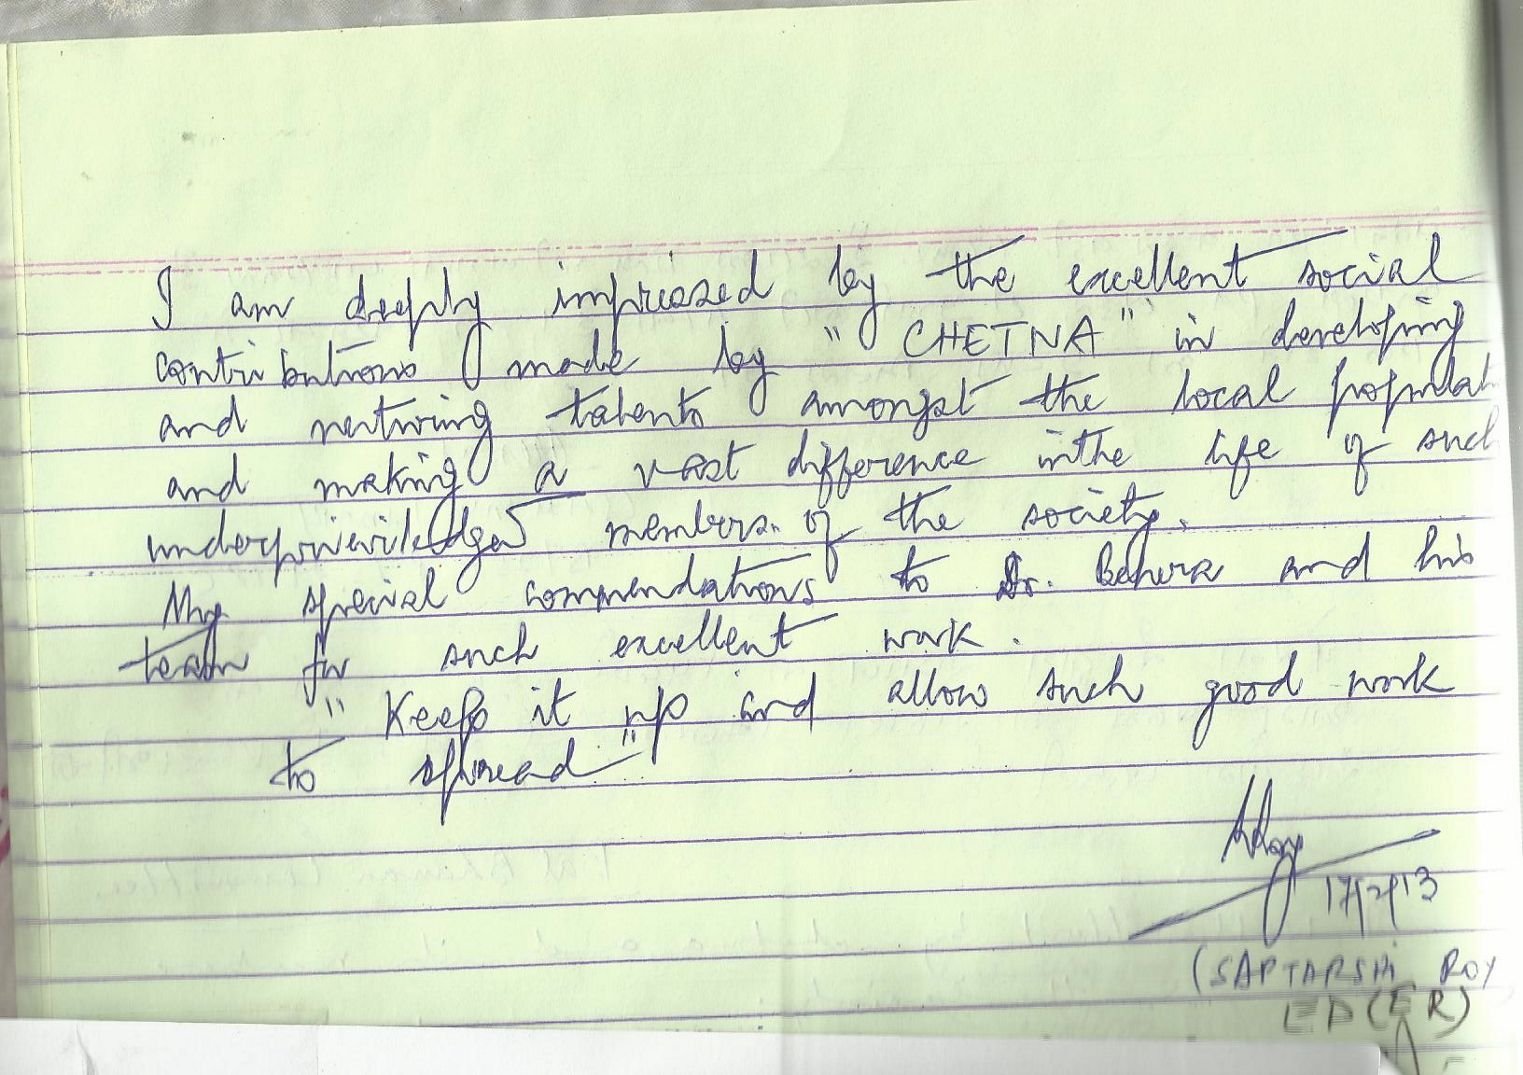 I am deeply impressed by the excellent social
contributions made by "CHETNA" in developing
and nurturing talents amongst the local populat
and making a vast difference inthe life of such
underpriviriledged members of the society.
My special commendations to Dr. Behera and his
team for such excellent work.
"Keep it up and allow such good work
to spread"
17/2/13
(SAPTARSHI ROY
ED(ER)